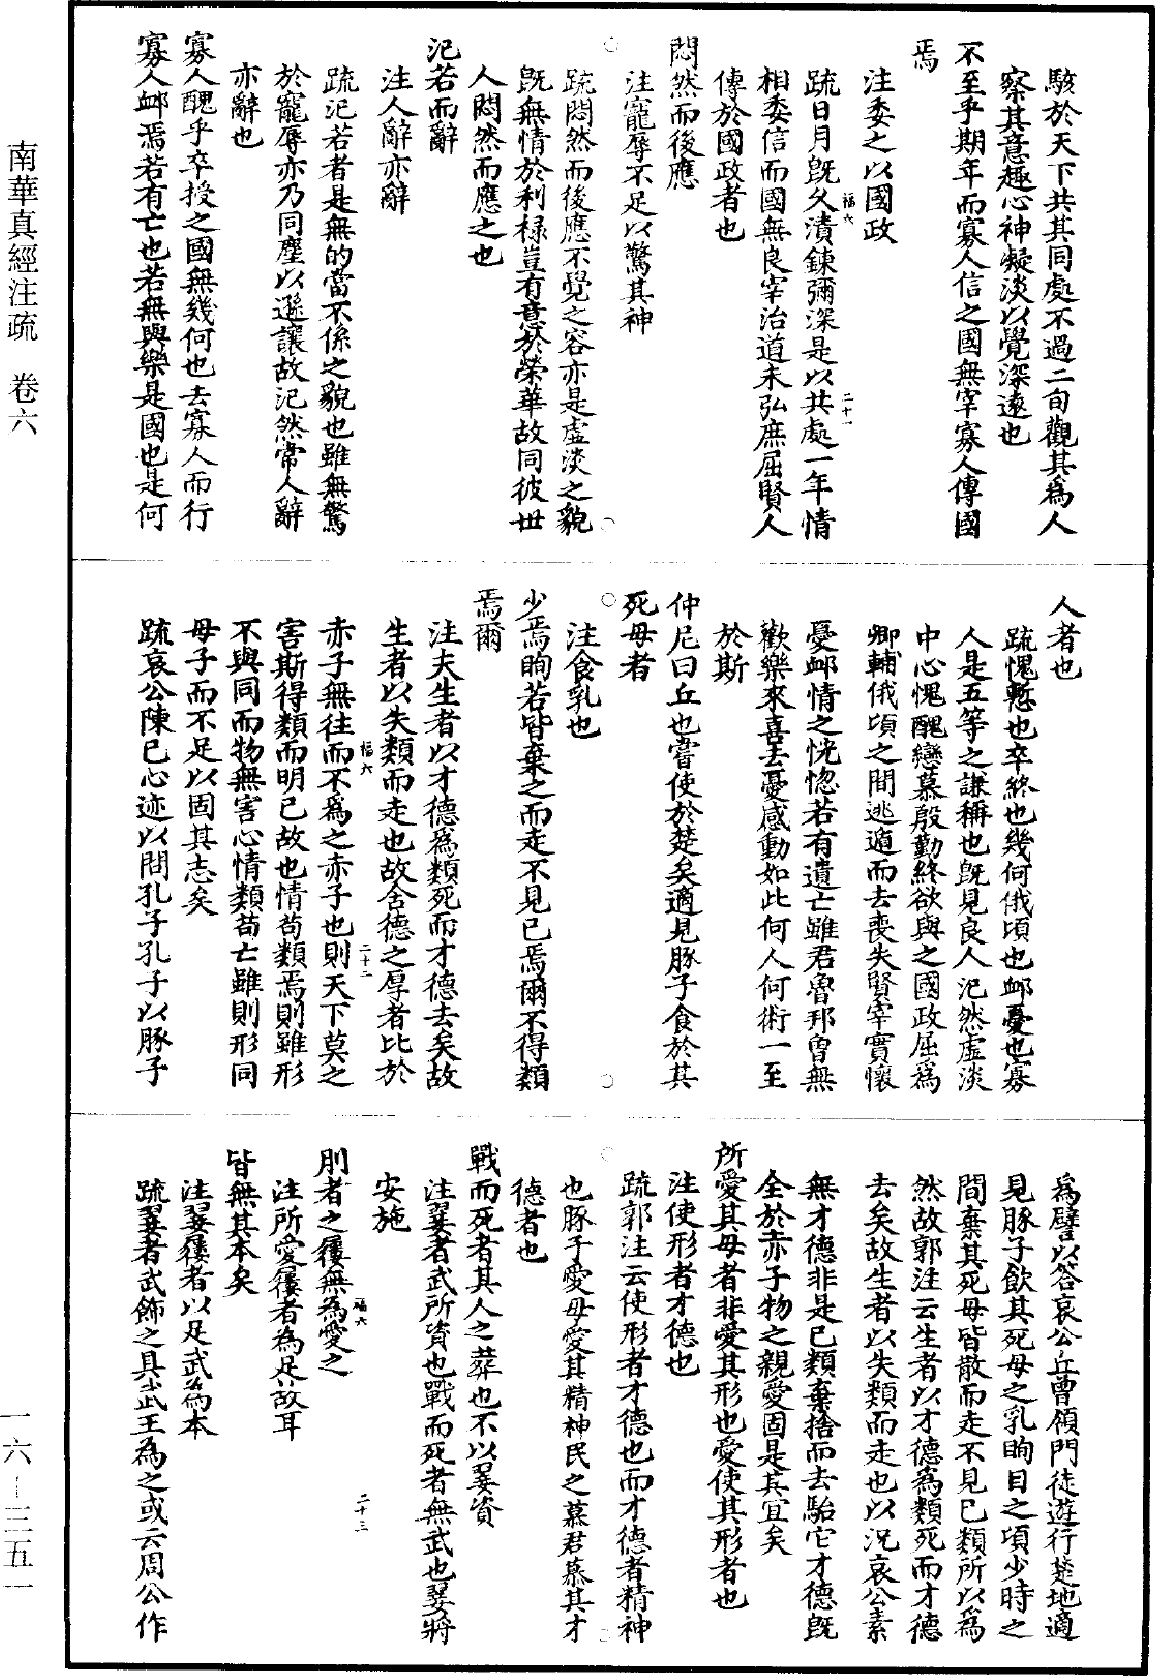 駭於天下共其同處不過二旬觀其爲人
察其意趣心神凝淡以覺深遠也
不至乎期年而寡人信之國無宰寡人傳國
焉
注委之以國政
疏日月旣久漬鍊彌深是以共處一年情
相委信而國無良宰治道未弘庶屈賢人
傳於國政者也
悶然而後應
注寵辱不足以驚其神
疏悶然而後應不覺之容亦是虛淡之貌
旣無情於利祿豈有意於榮華故同彼世
人悶然而應之也
氾若而辭
注人辭亦辭
疏氾若者是無的當不係之貌也雖無驚
於寵辱亦乃同塵以遜讓故氾然常人辭
亦辭也
寡人醜乎卒授之國無幾何也去寡人而行
寡人卹焉若有亡也若無與樂是國也是何
福六
二十一
人者也
疏愧慙也卒終也幾何俄頃也卹憂也寡
人是五等之謙稱也旣見良人氾然虛淡
中心愧醜戀慕殷勤終欲與之國政屈爲
卿輔俄頃之間逃遁而去喪失賢宰實懷
憂卹情之恍惚若有遺亡雖君魯邦曾無
歡樂來喜去憂感動如此何人何術一至
於斯
仲尼曰丘也嘗使於楚矣適見豚子食於其
死母者
注食乳也
少焉眴若皆棄之而走不見已焉爾不得類
焉爾
注夫生者以才德爲類死而才德去矣故
生者以失類而走也故舍德之厚者比於
赤子無往而不爲之赤子也則天下莫之
害斯得類而明已故也情苟類焉則雖形
不與同而物無害心情類苟亡雖則形同
母子而不足以固其志矣
疏哀公陳已心迹以問孔子孔子以豚子
福六
二十二
爲譬以答哀公丘曾領門徒遊行楚地適
見豚子飲其死母之乳眴目之頃少時之
間棄其死母皆散而走不見已類所以爲
然故郭注云生者以才德爲類死而才德
去矣故生者以失類而走也以況哀公素
無才德非是已類棄捨而去駘它才德旣
全於赤子物之親愛固是其宜矣
所愛其母者非愛其形也愛使其形者也
注使形者才德也
疏郭注云使形者才德也而才德者精神
也豚子愛母愛其精神民之慕君慕其才
德者也
戰而死者其人之葬也不以翣資
注翣者武所資也戰而死者無武也翣將
安施
刖者之屨無爲愛之
注所愛屨者爲足故耳
皆無其本矣
注翣屨者以足武爲本
疏翣者武飾之具武王爲之或云周公作
福六
二十三
南華真經注疏 卷六
一六—三五一